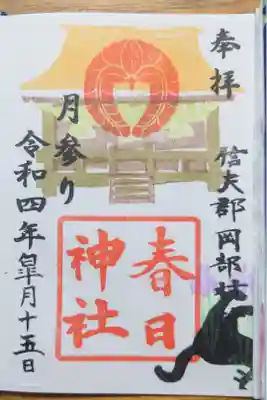 奉拝
信夫郡岡部村
春日
神社
月参り
令和四年皐月十五日